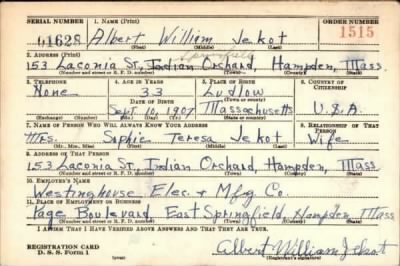 SERIAL NUMBER 1. NAME (Print) ORDER NUMBER
U1628 Albert William Jekot 1515
(First) (Middle) (Last)
2. ADDRESS (Print) Springfield
153 Laconia St, Indian Orchard, Hampden, Mass.
(Number and street or R. F. D. number) (Town) (County) (State)
3. TELEPHONE 4. AGE IN YEARS 5. PLACE OF BIRTH 6. COUNTRY OF CITIZENSHIP
None 33 Ludlow
DATE OF BIRTH (Town or county)
Sept. 10, 1907 Massachusetts U.S.A
(Exchange) (Number) (Mo.) (Day) (Yr.) (State or country)
7. NAME OF PERSON WHO WILL ALWAYS KNOW YOUR ADDRESS 8. RELATIONSHIP OF THAT PERSON
Mrs. Sophie Teresa Jekot Wife
(Mr., Mrs., Miss) (First) (Middle) (Last)
9. ADDRESS OF THAT PERSON
153 Laconia St., Indian Orchard, Hampden, Mass
(Number and street or R. F. D. number) (Town) (County) (State)
10. EMPLOYER'S NAME
Westinghouse Elec. + Mfg. Co.
11. PLACE OF EMPLOYMENT OR BUSINESS
Page Boulevard, East Springfield, Hampden, Mass
(Number and street or R. F. D. number) (Town) (County) (State)
I AFFIRM THAT I HAVE VERIFIED ABOVE ANSWERS AND THAT THEY ARE TRUE.
REGISTRATION CARD
D. S. S. Form 1 Albert William Jekot
(over) (Registrant's signature)